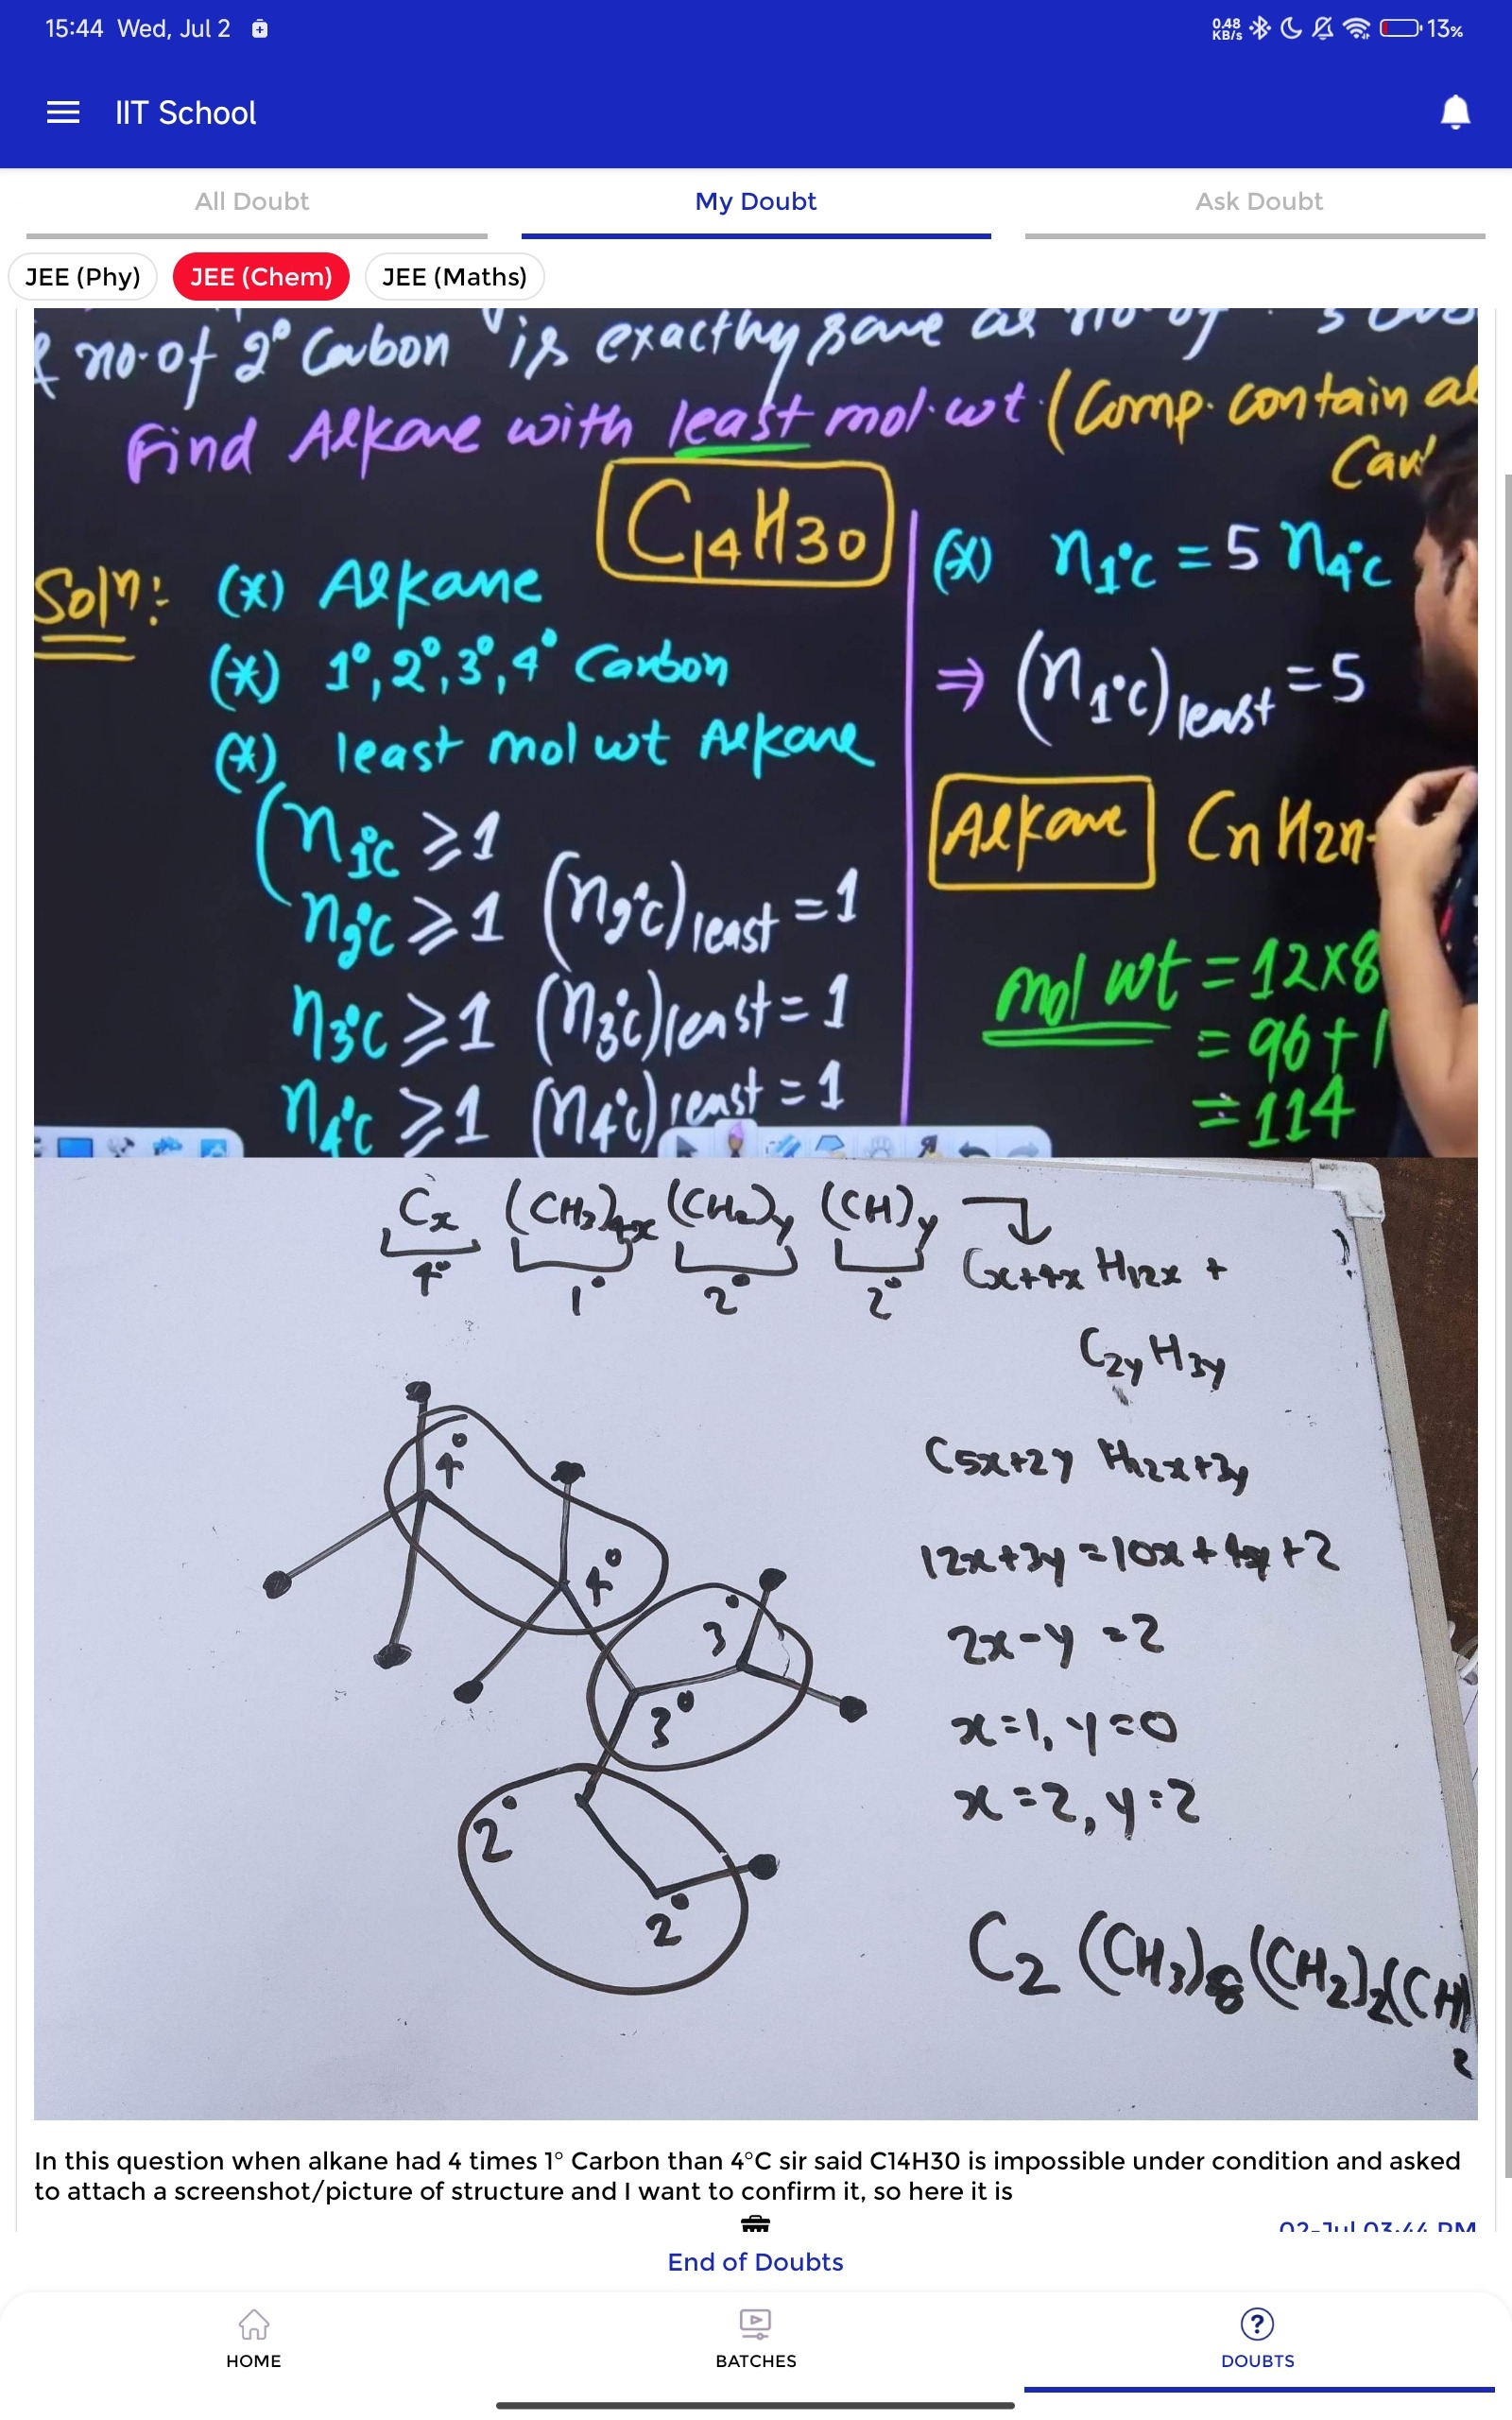 15:44 Wed, Jul 2
0.48 KB/s
13%
IIT School
All Doubt
My Doubt
Ask Doubt
JEE (Phy)
JEE (Chem)
JEE (Maths)
no. of 2° Carbon is exactly same as no of
Find Alkane with least mol. wt. (Comp. contain
C14H30
Soln:
(*) Alkane
(*) 1°, 2°, 3°, 4° Carbon
(*) least mol wt Alkane
(n1°C ≥ 1
n2°C ≥ 1 (n2°C)least = 1
n3°C ≥ 1 (n3°C)least = 1
n4°C ≥ 1 (n4°C)least = 1
(*) n1°C = 5 n4°C
⇒ (n1°C)least = 5
Alkane CnH2n
mol wt = 12×8
= 96 + 1
= 114
Cx (CH3)4x (CH2)y (CH)y
4° 1° 2° 2°
Cx+4x H12x +
C2y H3y
C5x+2y H12x+3y
12x+3y = 10x+4y+2
2x-y = 2
x=1, y=0
x=2, y=2
C2 (CH3)8 (CH2)2 (CH)2
4°
4°
3°
3°
2°
2°
In this question when alkane had 4 times 1° Carbon than 4°C sir said C14H30 is impossible under condition and asked
to attach a screenshot/picture of structure and I want to confirm it, so here it is
02-Jul 03:44 PM
End of Doubts
HOME
BATCHES
DOUBTS